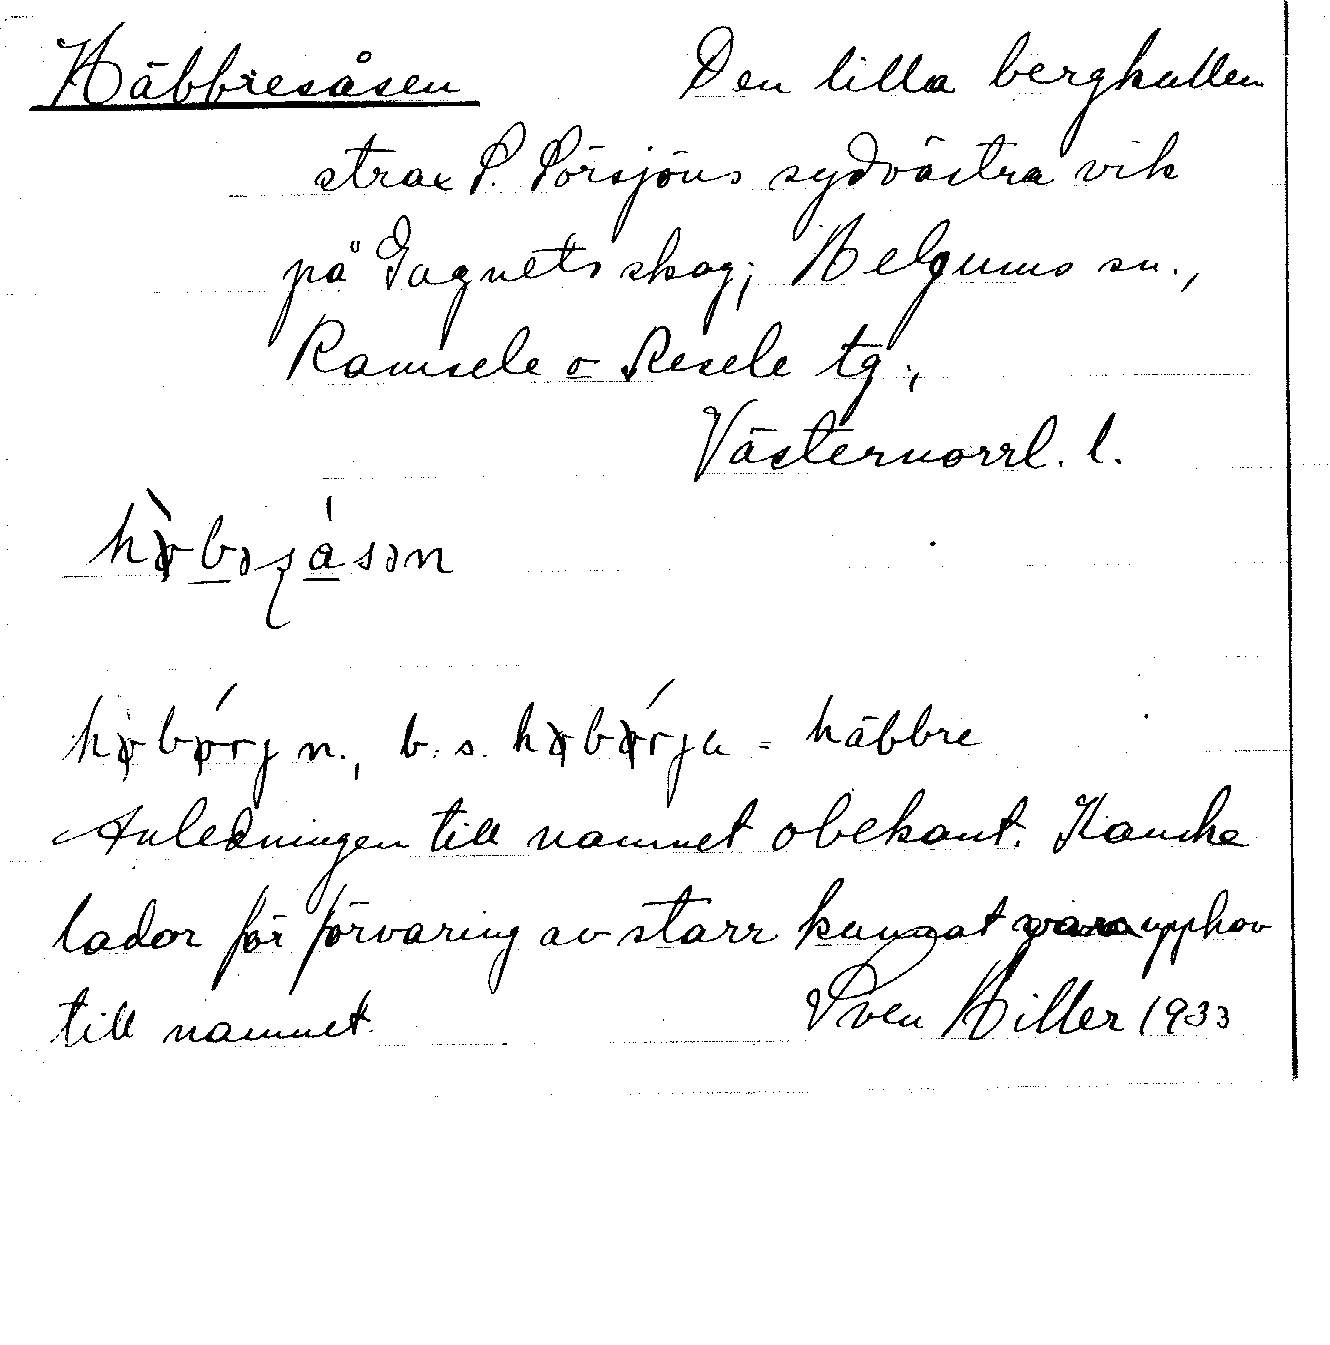 Häbbresåsen Den lilla bergkullen
strax S. Sörsjöns sydvästra vik
på Gagnets skog; Helgums sn.,
Ramsele o Resele tg.,
Västernorrl. l.
n., b. s. = häbbre
Anledningen till namnet obekant. Kanske
lador för förvaring av starr kunnat vara upphov
till namnet. Sven Hiller 1933